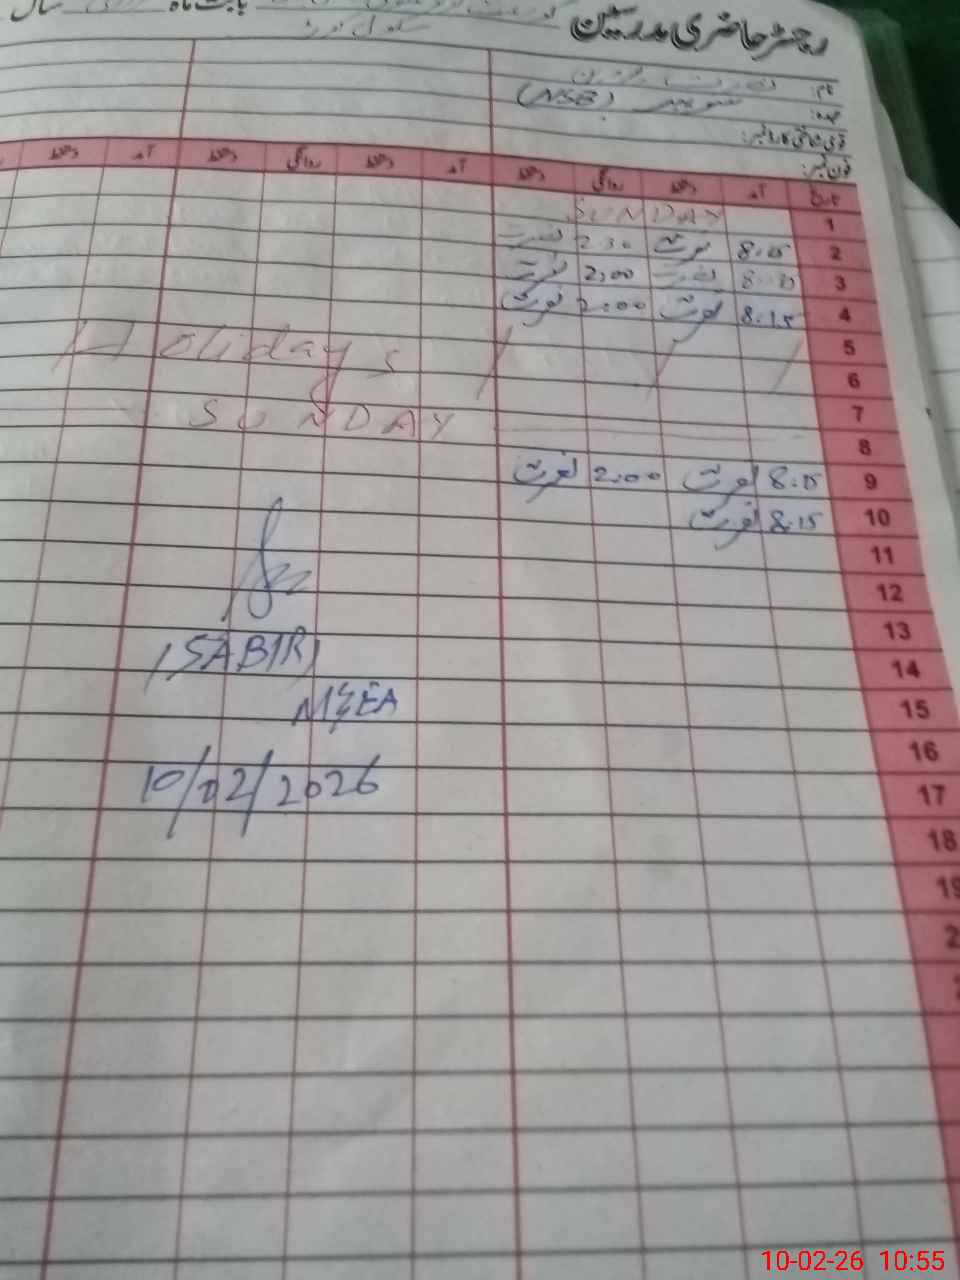 رجسٹر حاضری مدرسین بابت ماہ سال
نام:
عہدہ: (NSB)
قومی شناختی کارڈ نمبر:
فون نمبر:
تاریخ آمد دستخط روانگی دستخط آمد دستخط روانگی دستخط آمد دستخط
1 SUNDAY
2 8:15 نصرت 2:30 نصرت
3 8:15 نصرت 2:00 نصرت
4 8:15 نصرت 2:00 نصرت
5 Holidays
6
7
8 SUNDAY
9 8:15 نصرت 2:00 نصرت
10 8:15 نصرت
11
12
13
14 (SABIR)
15 M&EA
16
17 10/02/2026
18
19
10-02-26 10:55